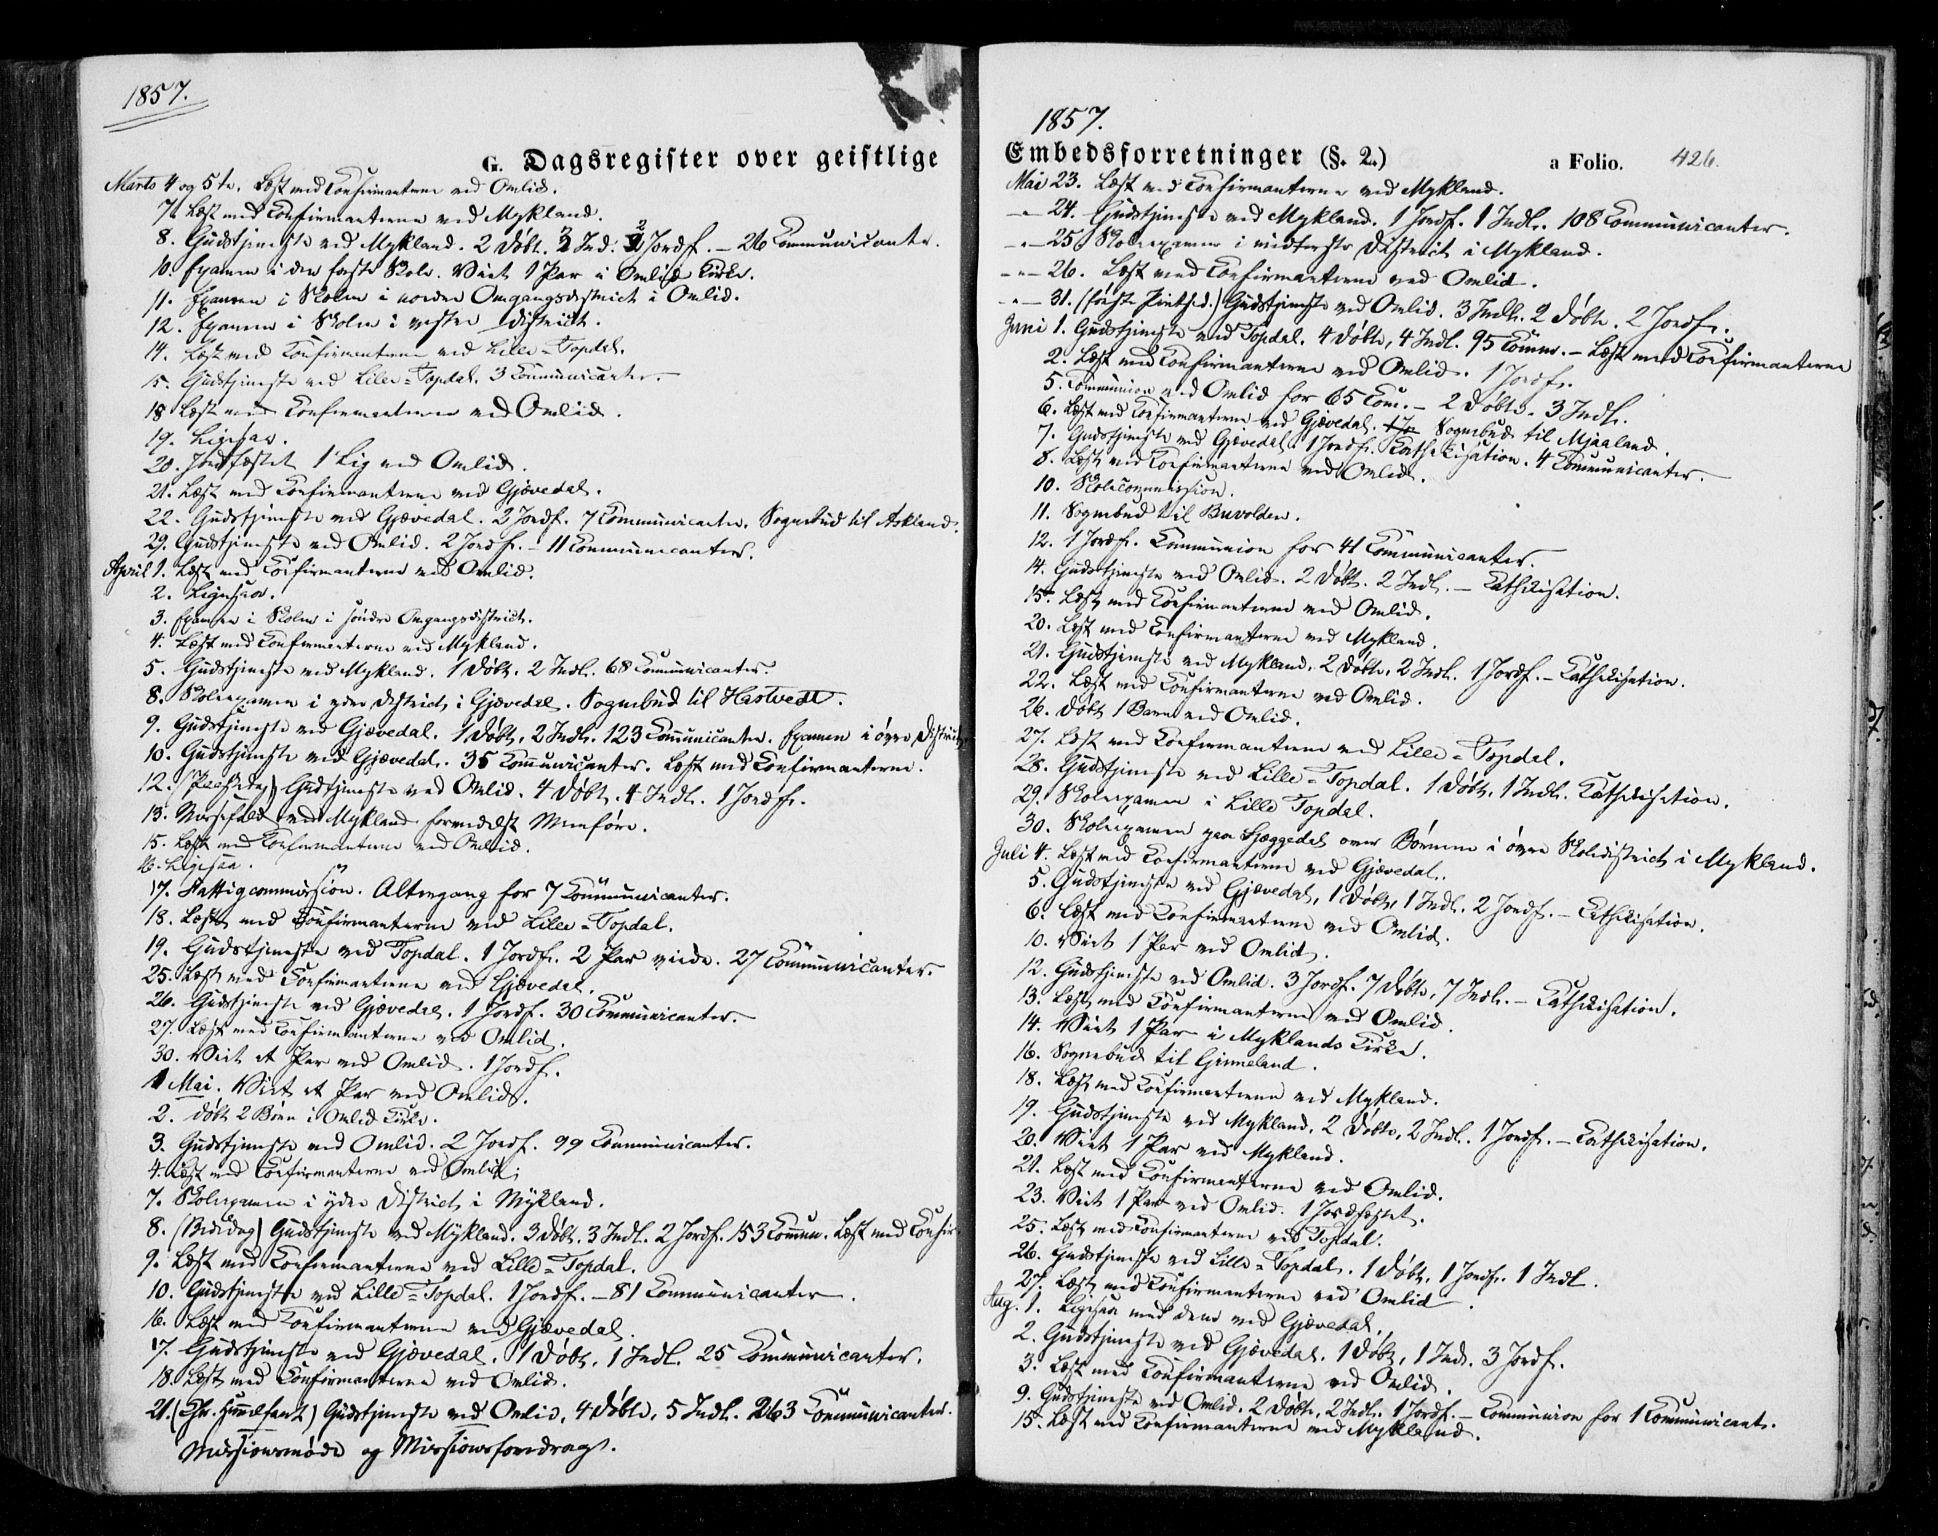 1857.
G. Dagsregister over geistlige
Marts 4 og 5te. Læst med Confirmanterne ved Omlid.
7. Læst med Confirmanterne ved Mykland.
8. Gudstjeneste ved Mykland. 2 Døbt. 2 Ind. 2 Jordf. – 26 Communicanter.
10. Examen i den faste Skole. Viet 1 Par i Omlids Kirke.
11. Examen i Skolen i nordre Omgangsdistrict i Omlid.
12. Examen i Skolen i vestre District.
14. Læst med Confirmanterne ved Lille-Topdal.
15. Gudstjeneste ved Lille-Topdal. 3 Communicanter.
18. Læst med Confirmanterne ved Omlid.
19. Ligesaa.
20. Jordfæstet 1 Lig ved Omlid.
21. Læst med Confirmanterne ved Gjøvedal.
22. Gudstjeneste ved Gjøvedal. 2 Jordf. 7 Communicanter. Sognebud til Askland.
29. Gudstjeneste ved Omlid. 2 Jordf. – 11 Communicanter.
April 1. Læst med Confirmanterne ved Omlid.
2. Ligesaa.
3. Examen i Skolen i søndre Omgangsdistrict.
4. Læst med Confirmanterne ved Mykland.
5. Gudstjeneste ved Mykland. 1 Døbt. 2 Indl. 68 Communicanter.
8. Skoleexamen i ydre District i Gjøvedal. Sognebud til Hastvedt.
9. Gudstjeneste ved Gjøvedal. 1 Døbt, 2 Indl. 123 Communicanter. Examen i øvre District
10. Gudstjeneste ved Gjøvedal. 35 Communicanter. Læst med Confirmanterne.
12. (Paaskedag) Gudstjeneste ved Omlid. 4 Døbt. 4 Indl. 1 Jordf.
13. Messefald ved Mykland formedelst Menføre.
15. Læst med Confirmanterne ved Omlid.
16. Ligesaa.
17. Fattigcommission. Altergang for 7 Communicanter.
18. Læst med Confirmanterne ved Lille-Topdal.
19. Gudstjeneste ved Topdal. 1 Jordf. 2 Par viede. 27 Communicanter.
25. Læst med Confirmanterne ved Gjøvedal.
26. Gudstjeneste ved Gjøvedal. 1 Jordf. 30 Communicanter.
27. Læst med Confirmanterne ved Omlid.
30. Viet et Par ved Omlid. 1 Jordf.
1 Mai. Viet et Par ved Omlid.
2. Døbt 2 Børn i Omlid Kirke.
3. Gudstjeneste ved Omlid. 2 Jordf. 99 Communicanter.
4. Læst med Confirmanterne ved Omlid.
7. Skoleexamen i ydre District i Mykland.
8. (Bededag) Gudstjeneste ved Mykland. 3 Døbt. 3 Indl. 2 Jordf. 153 Commun. Læst med Confir.
9. Læst med Confirmanterne ved Lille-Topdal.
10. Gudstjeneste ved Lille-Topdal. 1 Jordf. – 81 Communicanter.
16. Læst med Confirmanterne ved Gjøvedal.
17. Gudstjeneste ved Gjøvedal. 1 Døbt, 1 Indl. 25 Communicanter.
18. Læst med Confirmanterne ved Omlid.
21. (Chr. Himmelfart) Gudstjeneste ved Omlid, 4 Døbte, 5 Indl. 263 Communicanter.
Missionsmøde og Missionsforedrag.
1857.
Embedsforretninger (§. 2.) a Folio. 426.
Mai 23. Læst med Confirmanterne ved Mykland.
–"– 24. Gudstjeneste ved Mykland. 1 Jordf. 1 Indl. 108 Communicanter.
–"– 25. Skoleexamen i midterste District i Mykland.
–"– 26. Læst med Confirmanterne ved Omlid.
–"– 31. (første Pintsed.) Gudstjeneste ved Omlid. 3 Indl. 2 Døbte. 2 Jordf.
Juni 1. Gudstjeneste ved Topdal. 4 Døbte, 4 Indl. 95 Comm. – Læst med Confirmanterne
2. Læst med Confirmanterne ved Omlid. 1 Jordf.
5. Communion ved Omlid for 65 Com. – 2 Døbte. 3 Indl.
6. Læst med Confirmanterne ved Gjøvedal. Sognebud til Mjaaland.
7. Gudstjeneste ved Gjøvedal. 1 Jordf. Kathekisation. 4 Communicanter.
8. Læst med Confirmanterne ved Omlid.
10. Skolecommission.
11. Sognebud til Buvolden.
12. 1 Jordf. Communion for 41 Communicanter.
14. Gudstjeneste ved Omlid. 2 Døbt. 2 Indl. – Kathekisation.
15. Læst med Confirmanterne ved Omlid.
20. Læst med Confirmanterne ved Mykland.
21. Gudstjeneste ved Mykland, 2 Døbte, 2 Indl. 1 Jordf. – Kathekisation.
22. Læst med Confirmanterne ved Omlid.
26. Døbt 1 Barn ved Omlid.
27. Læst med Confirmanterne ved Lille-Topdal.
28. Gudstjeneste ved Lille-Topdal. 1 Døbt, 1 Indl. Kathekisation.
29. Skoleexamen i Lille Topdal.
30. Skoleexamen paa Hæggedal over Børnene i øvre Skoledistrict i Mykland.
Juli 4. Læst med Confirmanterne ved Gjøvedal.
5. Gudstjeneste ved Gjøvedal, 1 Døbt, 1 Indl. 2 Jordf. – Kathekisation.
6. Læst med Confirmanterne ved Omlid.
10. Viet 1 Par ved Omlid.
12. Gudstjeneste ved Omlid. 3 Jordf. 7 Døbte, 7 Indl. – Kathekisation.
13. Læst med Confirmanterne ved Omlid.
14. Viet 1 Par i Myklands Kirke.
16. Sognebud til Grimeland.
18. Læst med Confirmanterne ved Mykland.
19. Gudstjeneste ved Mykland, 2 Døbte, 2 Indl. 1 Jordf. – Kathekisation.
20. Viet 1 Par ved Mykland.
21. Læst med Confirmanterne ved Omlid.
23. Viet 1 Par ved Omlid. 1 Jordfæstet.
25. Læst med Confirmanterne ved Topdal.
26. Gudstjeneste ved Lille-Topdal. 1 Døbt, 1 Jordf. 1 Indl.
27. Læst med Confirmanterne ved Omlid.
Aug. 1. Ligesaa med dem ved Gjøvedal.
2. Gudstjeneste ved Gjøvedal. 1 Døbt, 1 Indl. 3 Jordf.
3. Læst med Confirmanterne ved Omlid.
9. Gudstjeneste ved Omlid. 2 Døbte, 2 Indl. 1 Jordf. – Communion for 1 Communicant.
15. Læst med Confirmanterne ved Mykland.